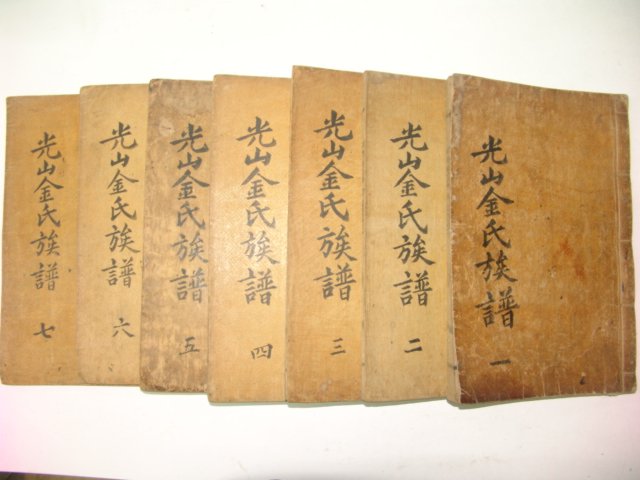 光山金氏族譜 一
光山金氏族譜 二
光山金氏族譜 三
光山金氏族譜 四
光山金氏族譜 五
光山金氏族譜 六
光山金氏族譜 七